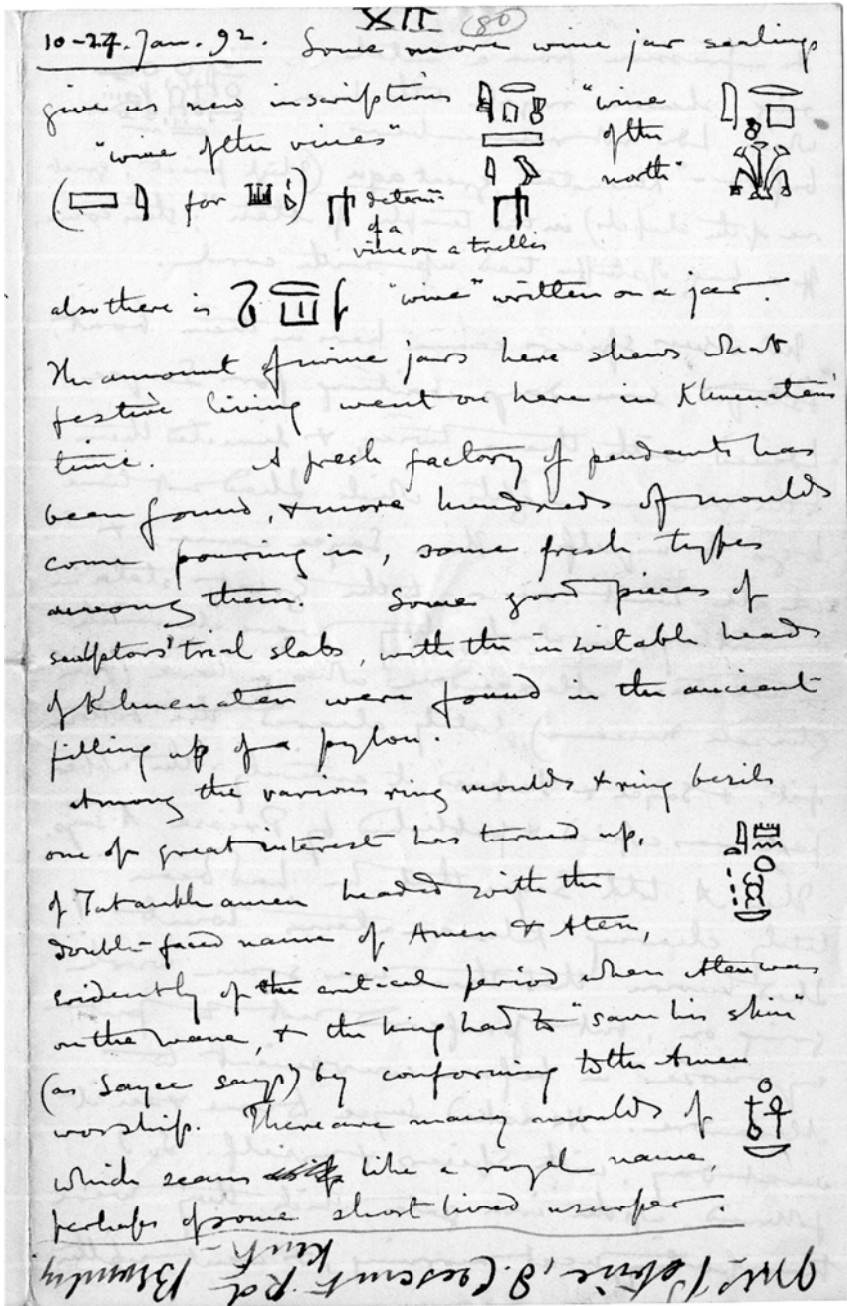 XII (80)
10-24. Jan. 92. Some more wine jar sealings
give us new inscriptions "wine
"wine of the vines" of the
north"
( for ) determ:
of a
vine on a trellis
also there is "wine" written on a jar.
The amount of wine jars here shews what
festive living went on here in Khuenaten's
time. A fresh factory of pendants has
been found, & more hundreds of moulds
come pouring in, some fresh types
among them. Some good pieces of
sculptors' trial slabs, with the inevitable heads
of Khuenaten were found in the ancient
filling up of a pylon.
Among the various ring moulds & ring bezils
one of great interest has turned up,
of Tutankhamen headed with the
double-faced name of Amen & Aten,
evidently of the critical period when Aten was
on the wane, & the king had to "save his skin"
(as Sayce says) by conforming to the Amen
worship. There are many moulds of
which seems like a royal name,
perhaps of some short lived usurper.
Mrs Petrie, 8. Crescent Rd Bromley
Kent